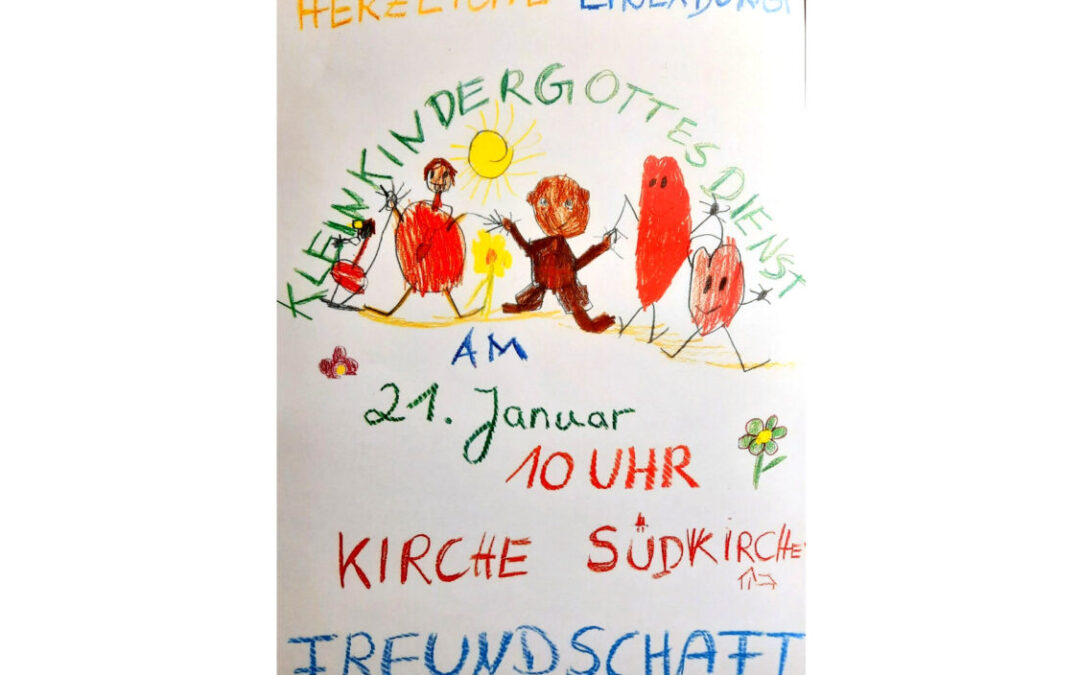 HERZLICHE EINLADUNG!
KLEINKINDERGOTTESDIENST
AM
21. Januar
10 UHR
KIRCHE SÜDKIRCHE
FREUNDSCHAFT